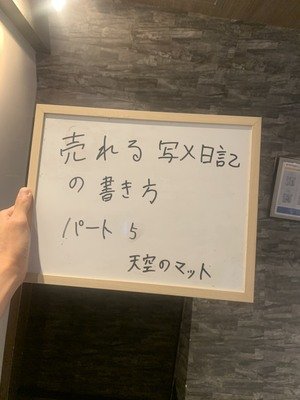 売れる写メ日記
の書き方
パート 5
天空のマット